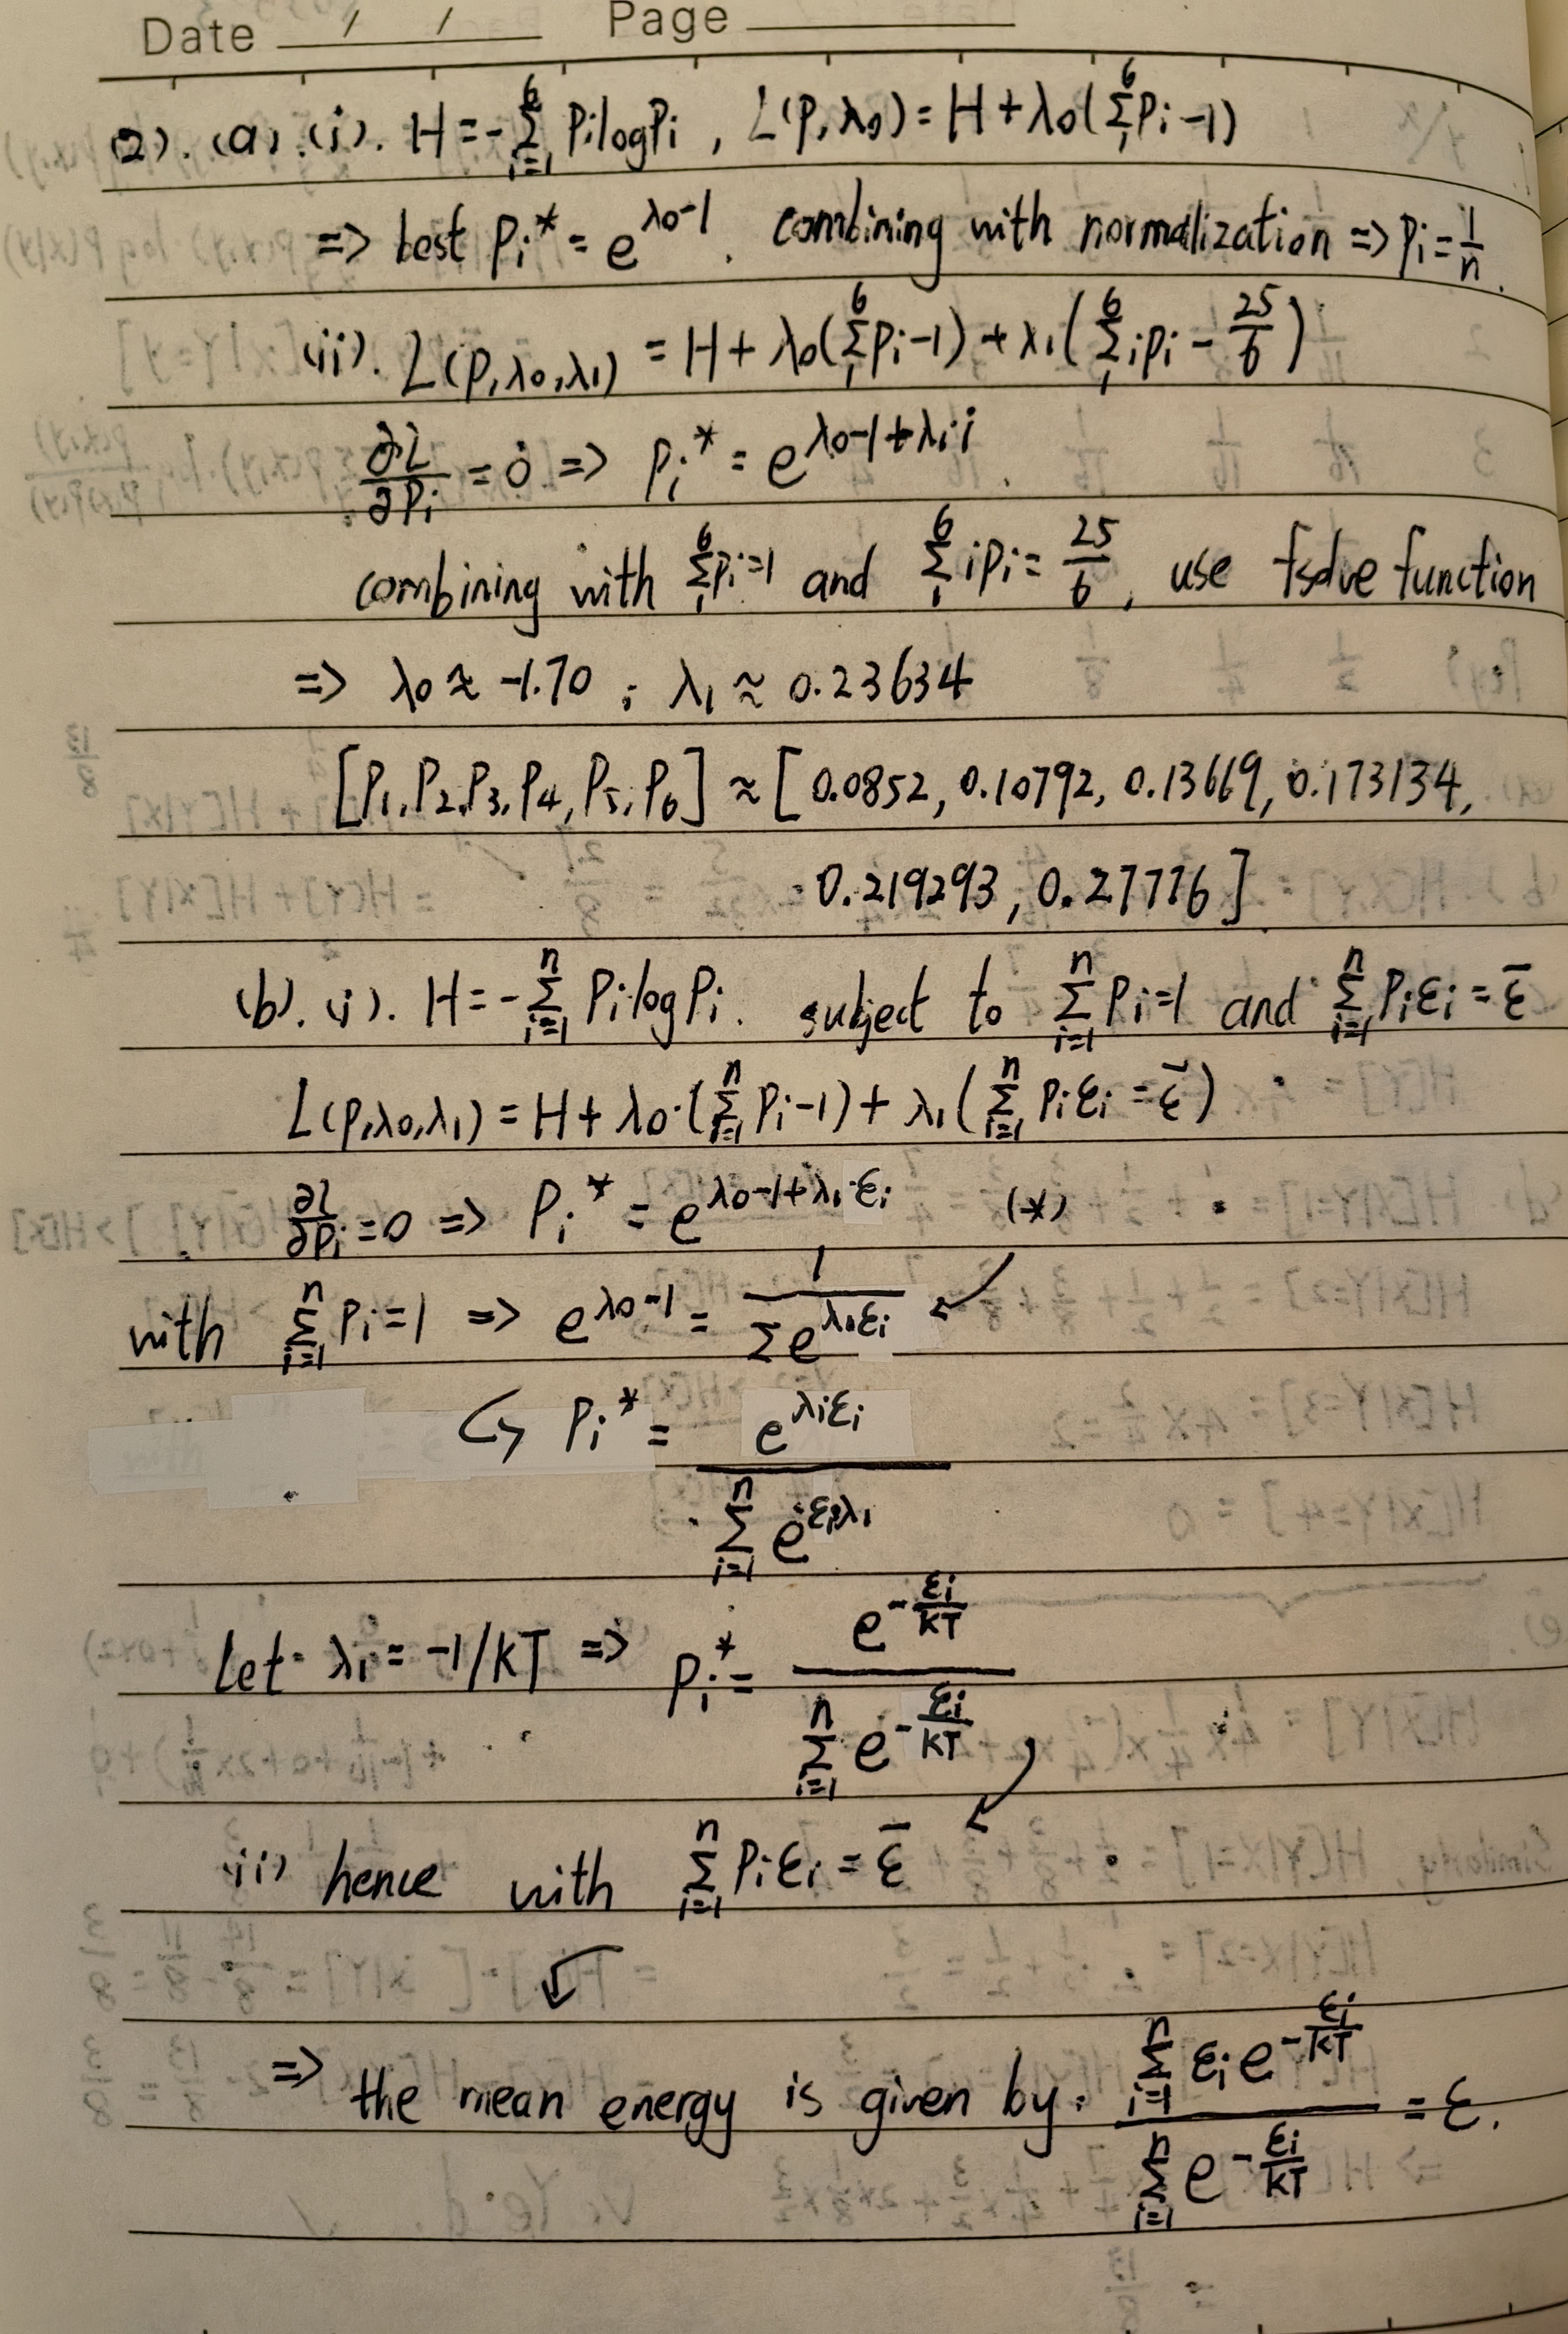 Date / / Page
(2). (a). (i). H = -∑_{i=1}^{6} Pi log Pi , L(P, λ0) = H + λ0(∑_{1}^{6} Pi - 1)
=> best Pi* = e^{λ0-1} . combining with normalization => Pi = 1/n.
(ii). L(P, λ0, λ1) = H + λ0(∑_{1}^{6} Pi - 1) + λ1(∑_{1}^{6} iPi - 25/6)
∂L/∂Pi = 0 => Pi* = e^{λ0-1+λ1·i} .
combining with ∑_{1}^{6} Pi = 1 and ∑_{1}^{6} iPi = 25/6 , use fsolve function
=> λ0 ≈ -1.70 ; λ1 ≈ 0.23634
[P1, P2, P3, P4, P5, P6] ≈ [0.0852, 0.10792, 0.13669, 0.173134,
0.219293, 0.27776]
(b). (i). H = -∑_{i=1}^{n} Pi log Pi . subject to ∑_{i=1}^{n} Pi = 1 and ∑_{i=1}^{n} Pi εi = ε̄
L(P, λ0, λ1) = H + λ0·(∑_{i=1}^{n} Pi - 1) + λ1(∑_{i=1}^{n} Pi εi = ε̄)
∂L/∂Pi = 0 => Pi* = e^{λ0-1+λ1·εi} (*)
with ∑_{i=1}^{n} Pi = 1 => e^{λ0-1} = 1/∑e^{λ1εi} ↙
↪ Pi* = e^{λiεi} / ∑_{i=1}^{n} e^{εiλ1}
Let λ1 = -1/kT => Pi* = e^{-εi/kT} / ∑_{i=1}^{n} e^{-εi/kT}
(ii) hence with ∑_{i=1}^{n} Pi εi = ε̄ ↙
=> the mean energy is given by: ∑_{i=1}^{n} εi e^{-εi/kT} / ∑_{i=1}^{n} e^{-εi/kT} = ε.